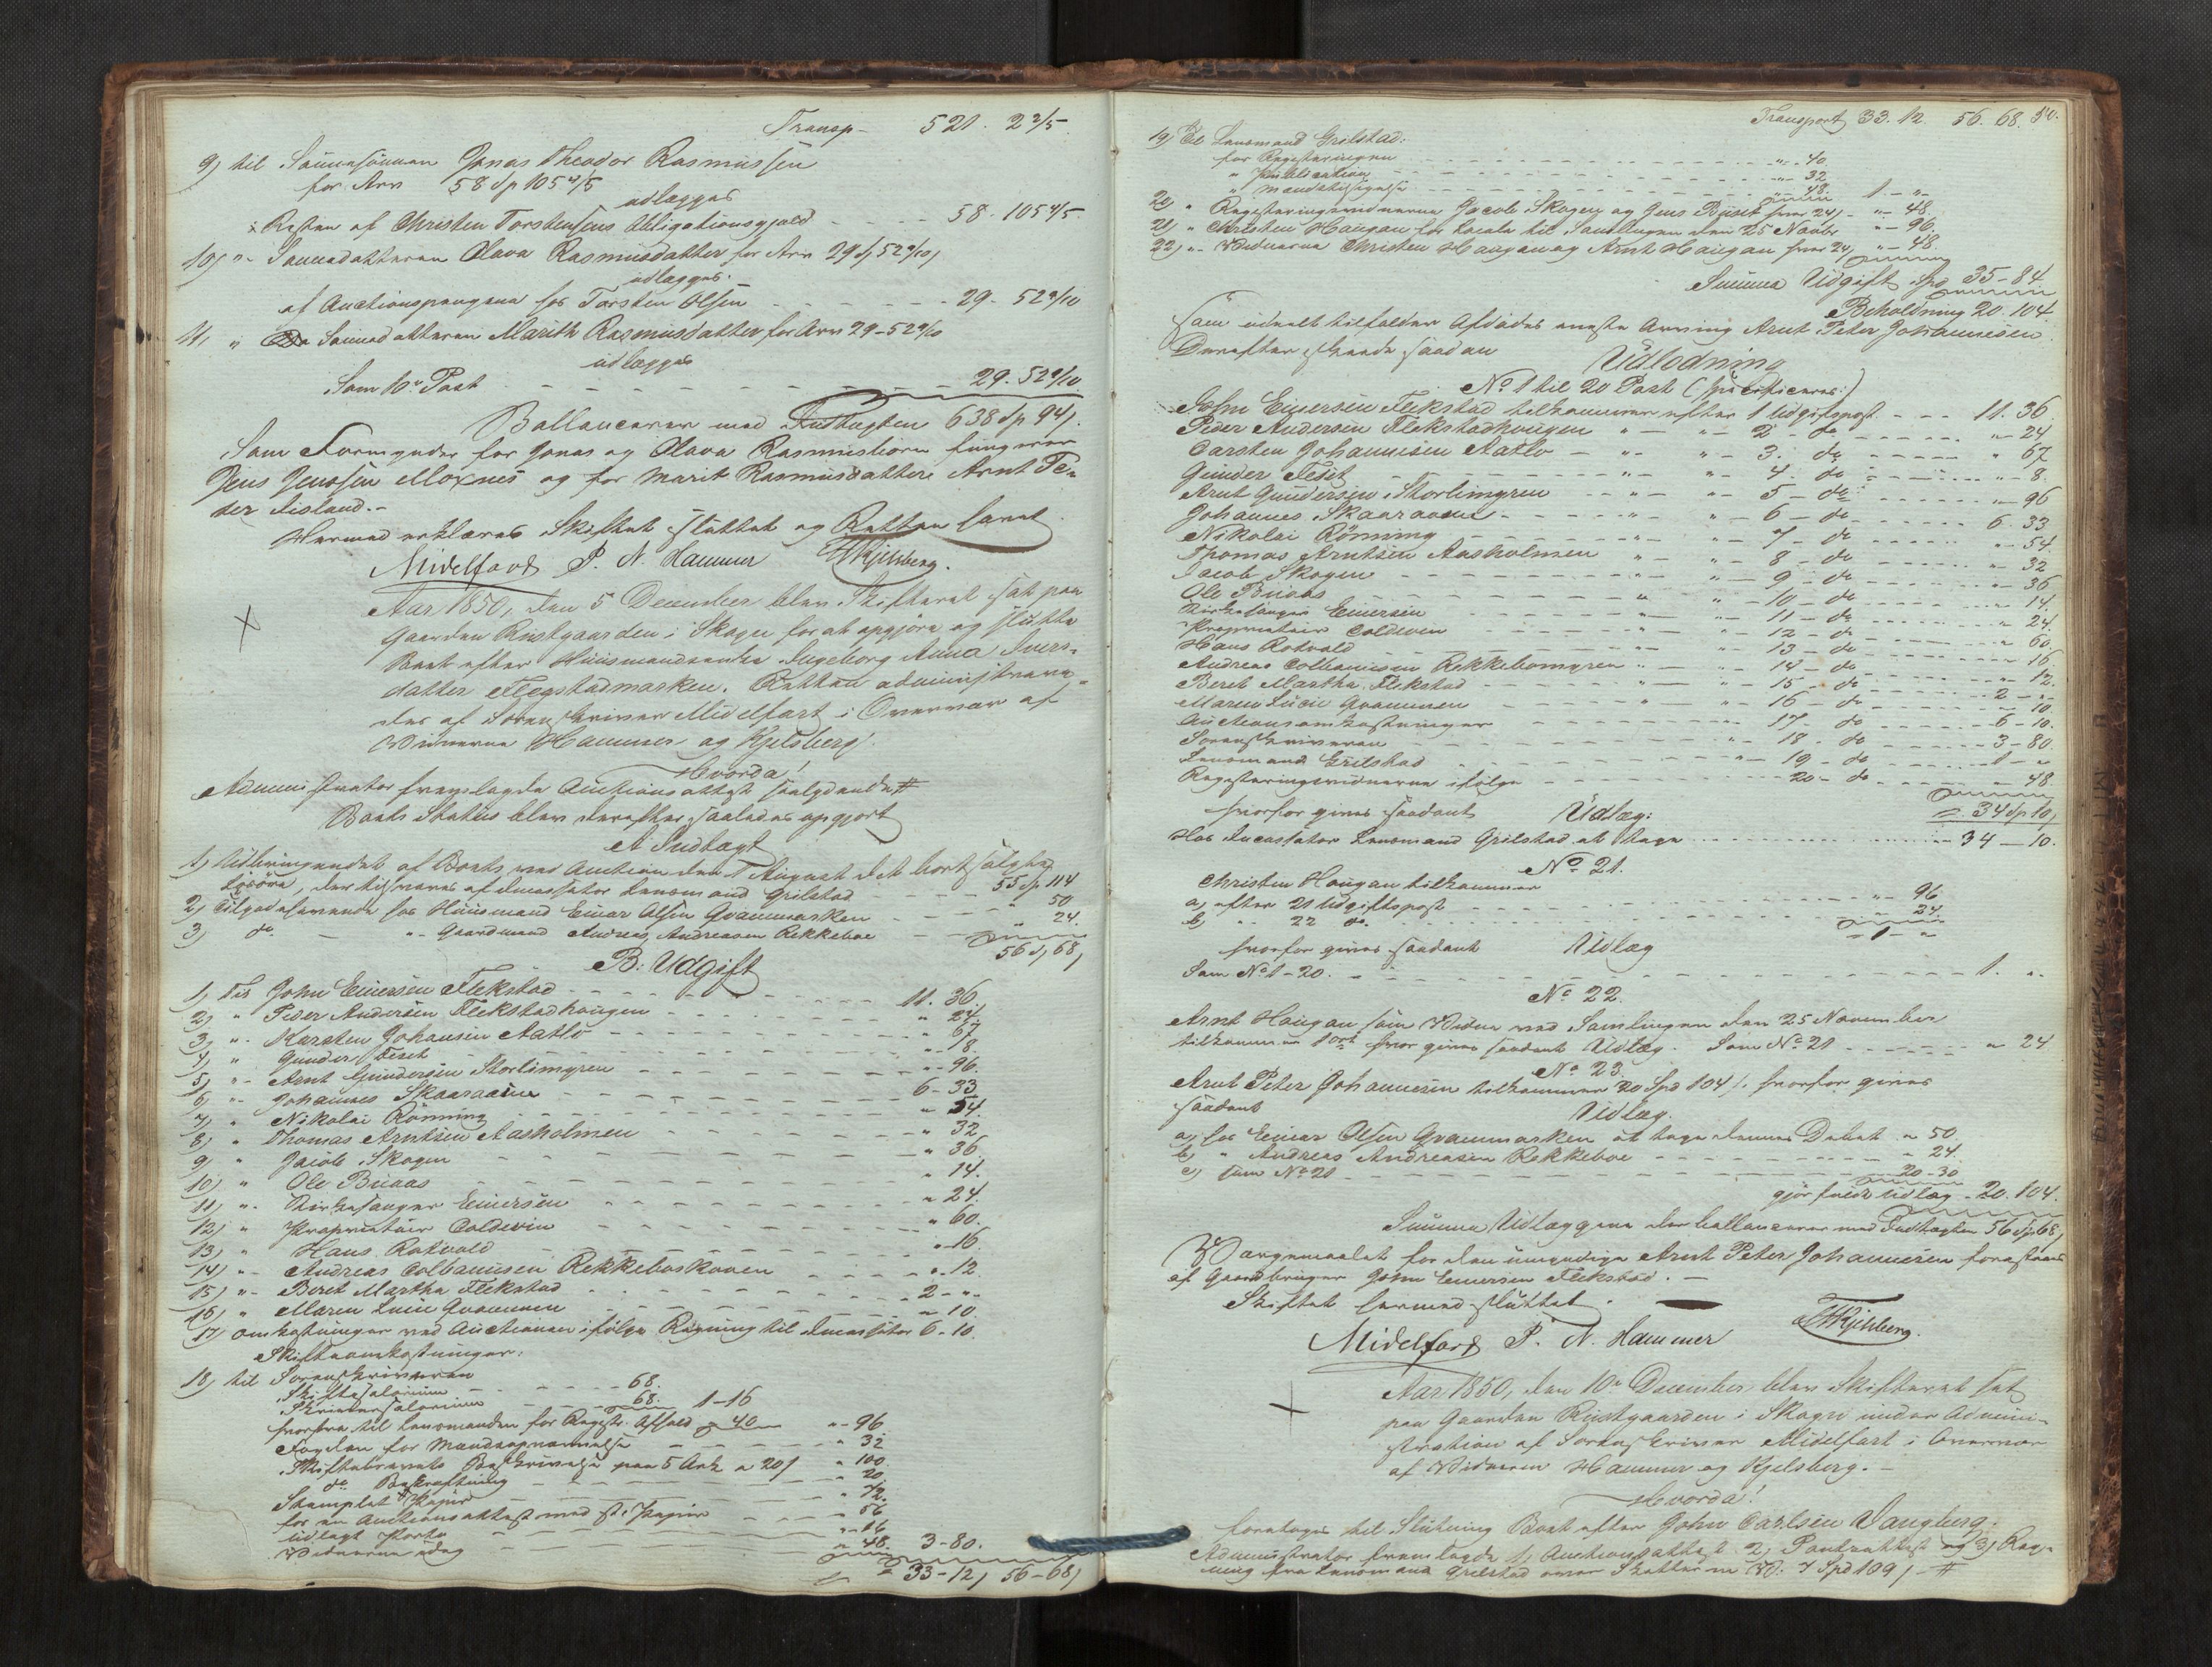 Transp- 521. 2 2/5
9) til Sønnesønnen Jonas Theodor Rasmussen
for Arv 58 Sp 105 4/5
udlægges
i Resten af Christen Torstensens Obligationsgjæld - - - - 58. 105 4/5.
10) "- Sønnedatteren Olava Rasmusdatter for Arv 29 Sp 52 9/10
udlægges.
af Auctionspengene hos Torsten Olsen - - - - - - - 29- 52 9/10
11, " Sønnedatteren Marith Rasmusdatter for Arv 29-52 9/10
udlægges
Som 10de Post - - - - - - - 29. 52 9/10
Ballancerer med Indtægten 638 Sp 94 /.
Som Formynder for Jonas og Olava Rasmusbørn fungerer
Jens Jenssen Moxnes og for Marit Rasmusdatter Arnt Pe-
der Fisland.-
Hermed erklæres Skiftet sluttet og Retten hævet
Midelfart P. N. Hammer Kjelsberg.
Aar 1850, den 5 December blev Skifteret sat paa
Gaarden Rustgaarden i Skogn for at opgjøre og slutte
Boet efter Huusmandsenke Ingeborg Anna Ivers-
datter Flegstadmarken. Retten administrere-
des af Sorenskriver Midelfart i Overvær af
Vidnerne Hammer og Kjelsberg.
Hvorda!
Administrator fremlagde Auctionsattest saalydende #
Boets Status blev derefter saaledes opgjort
A Indtægt
1) Udbringendet af Boets ved Auction den 1 August d.A. bortsolgte
Løsøre, der tilsvares af Incassator Lensmand Grilstad - - - 55 Sp 114
2) Tilgodehavende hos Huusmand Einar Olsen Qvammarken - - - " 50
3) do - "- Gaardmand Andreas Andreasen Rekkeboe - - " 24.
56 Sp 68,
B: Udgift
1) Til John Einersen Flekstad - - - - - - 11. 36.
2) " Peder Andersen Flekstadhougen - - - - " 24.
3) ". Karsten Johansen Aatlo - - - - " 67
4) " Gunder Feset - - - - " 8.
5) "- Arnt Gundersen Storlimyren - - - - "- 96.
6) "- Johannes Skaaraaen - - - - 6- 33
7) " Nikolai Rønning - - - - " 54.
8) " Thomas Arntsen Aasholmen - - - - " 32
9) " Jacob Skogen - - - - " 36.
10) " Ole Buaas - - - - " 14.
11) ". Kirkesanger Einersen - - - - " 24.
12) " Proprietair Coldevin - - - - " 60.
13) " Hans Rotvold - - - - " 16.
14) "- Andreas Colbanusen Rekkebo - - - - " 12.
15) "- Beret Martha Flekstad - - - - 2 - "-
16) " Maren Lucie Qvammen - - - - " 10.
17) Omkostninger ved Auctionen ifølge Regning til Incassator 6-10.
Skifteomkostninger:
18) til Sorenskriveren
Skiftesalarium - - - - 68.
Skriversalarium - - - - 68. 1-16
hvorfra til Lensmanden for Registr. Afhold 40 "-96
Fogden for Mandsopnævnelse - - - - " 32
Skiftebrevets Beskrivelse paa 5 Ark a 20 / " 100
do Bekræftning - - - - " 20.
Stemplet Papir - - - - " 72.
for en Auctionsattest med st: Papir - - - - " 56
udlagt Porto - - - - " 16
Vidnerne idag - - - - " 48. 3-80.
33-12, 56-68,
Transport 33. 12. 56. 68.
19) Til Lensmand Grilstad:
for Registeringen - - - - "- 40.
" Publication - - - - "- 32
" Mandstilsigelse - - - - " 48. 1 - "-
20 " Registeringsvidnerne Jacob Skogen og Jens Bust hver 24 /- "- 48.
21, " Christen Haugan for locale til Samlingen den 25 Novbr "- 96.
22, "- Vidnerne Christen Haugan og Arnt Haugan hver 24, "- 48.
Summa Udgift Spd 35-84
Beholdning 20. 104
som udeelt tilfalder Afdødes eneste Arving Arnt Peter Johannesen.
Derefter skeede saadan
Udlodning
No 1 til 20 Post (specificeres:)
John Einersen Flekstad tilkommer efter 1 Udgiftspost - - - 11. 36
Peder Andersen Flekstadhougen " - "- 2 - do - - - "- 24
Carsten Johannesen Aatlo - "- "- 3. do - - - " 67
Gunder Feset - "- "- 4. do - - - "- 8.
Arnt Gundersen Storlimyren - "- "- 5 - do - - - "- 96
Johannes Skaaraaen - "- " - 6 - do - - - 6. 33
Nikolai Rønning - "- " - 7 - do - - - "- 54.
Thomas Arntsen Aasholmen "- "- 8 - do - - - " 32
Jacob Skogen - "- "- 9 - do - - - "- 36
Ole Buaas - " "- 10 - do - - - "- 14.
Kirkesanger Einersen - " - 11 - do - - - " 24.
Proprietair Coldevin - "- "- 12 - do - - - " 60.
Hans Rotvold - "- "- 13 - do - - - " 16
Andreas Colbanusen Rekkebomyren "- "- 14 - do - - - " 12.
Beret Martha Flekstad - "- "- 15 - do - - - 2 - "-
Maren Lucie Qvammen - " "- 16 - do - - - " 10.
Auctionsomkostninger - - - 17 - do - - - 6 - 10.
Sorenskriveren - - - "- 18 - do - - - 3 - 80.
Lensmand Grilstad - - - "- 19 - do - - - 1 - "
Registeringsvidnerne ifølge - - - 20 - do - - - " 48.
34 Sp 10,
hvorfor gives saadant Udlæg:
Hos Incassator Lensmand Grilstad at tage - - - - 34 - 10.
No 21.
Christen Haugan tilkommer
a, efter 21 Udgiftspost - - - - "- 96
b, " 22 do. - - - - " 24.
- 1 - "
hvorfor gives saadant Udlæg
Som No 1-20. - - - - 1. "-
No 22.
Arnt Haugan som Vidne ved Samlingen den 25 November
tilkommer 1 ort hvor gives saadant Udlæg. Som No 21 - - - - " 24
No 23.
Arnt Peter Johannesen tilkommer 20 Spd 104 /. hvorfor gives
saadant Udlæg.
a, hos Einar Olsen Qvammarken at tage dennes Debet " 50.
b, " Andreas Andreasen Rekkeboe - - - - " 24.
c, som No 21 - - - - 20-30
gjør fuldt Udlæg - 20. 104.
Summa Udlæggene der ballancerer med Indtægten 56 Sp 68,
Værgemaalet for den umyndige Arnt Peter Johannesen forestaaes
af Gaardbruger John Einersen Flekstad. -
Skiftet hermed sluttet.
Midelfart P. N. Hammer Kjelsberg.
Aar 1850, den 10de December blev Skifteret sat
paa Gaarden Rustgaarden i Skogn under Admini-
stration af Sorenskriver Midelfart i Overvær
af Vidnerne Hammer og Kjelsberg.-
Hvorda!
foretoges til Slutning Boet efter John Carlsen Vangberg.
Administrator fremlagde 1, Auctionsattest 2, Panteattest og 3, Reg-
ning fra Lensmand Grilstad over Skatter m V. 7 Spd 109 / - #